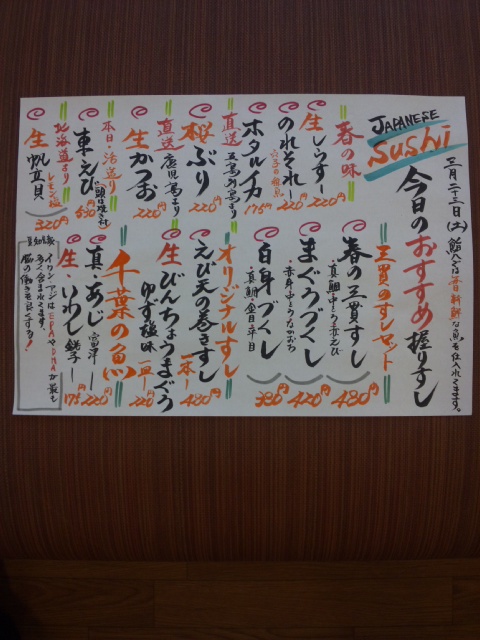 三月二十三日(土)
鮨人では毎日新鮮な魚を仕入れてます。
JAPANESE
Sushi
今日のおすすめ握りすし
春の味
生しらす 220円
のれそれ 220円
穴子の稚魚
ホタルイカ 175円
直送
五島列島より
桜ぶり 220円
直送
鹿児島より
生かつお 220円
本日・活造り
車えび 530円
北海道より
生帆立貝 320円
レモン塩
三貫のすしセット
春の三貫すし 480円
まぐろづくし 420円
白身づくし 380円
オリジナルすし
えび天の巻きすし 一本 480円
生びんちょうまぐろ
ゆず塩味 220円
千葉の魚
真・あじ 富津 220円
生・いわし 銚子 175円
豆知識
イワシ・アジはEPAやDHAが最も
多く含まれてます。
脳の働きを良くする!